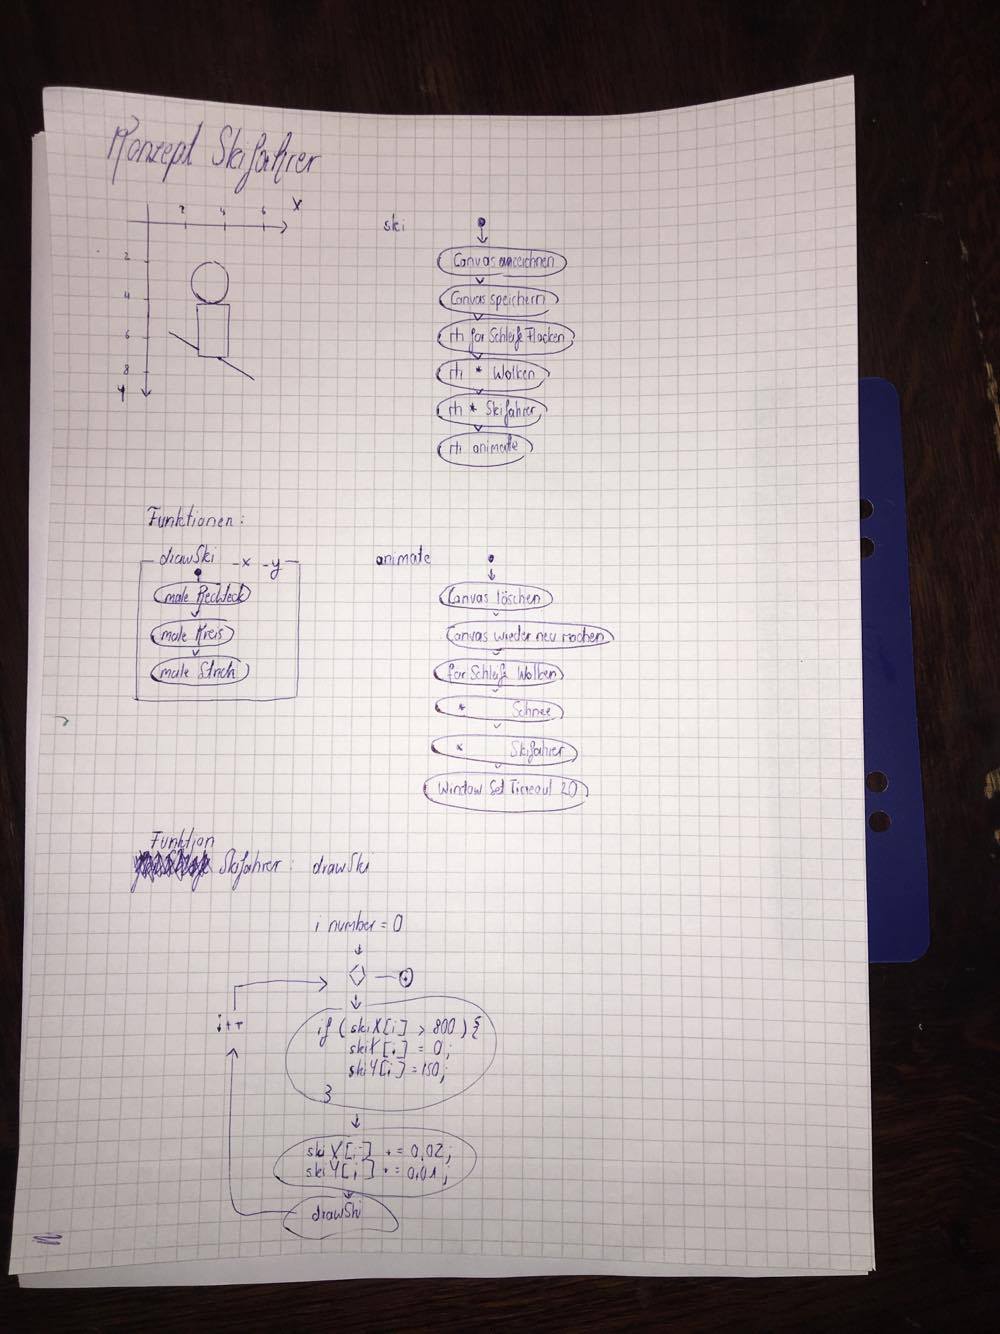 Konzept Skifahrer
2 4 6 X
2
4
6
8
Y
ski
Canvas anzeichnen
Canvas speichern
rh for Schleife Flocken
rh " Wolken
rh " Skifahrer
rh animate
Funktionen:
drawSki -x -y
male Rechteck
male Kreis
male Strich
animate
Canvas löschen
Canvas wieder neu machen
for Schleife Wolken
" Schnee
" Skifahrer
Window Set Timeout 20
Funktion
Skifahrer: drawSki
i number = 0
i++
if (skiX[i] > 800) {
skiX[i] = 0;
skiY[i] = 150;
}
skiX[i] += 0,02;
skiY[i] += 0,01;
drawSki